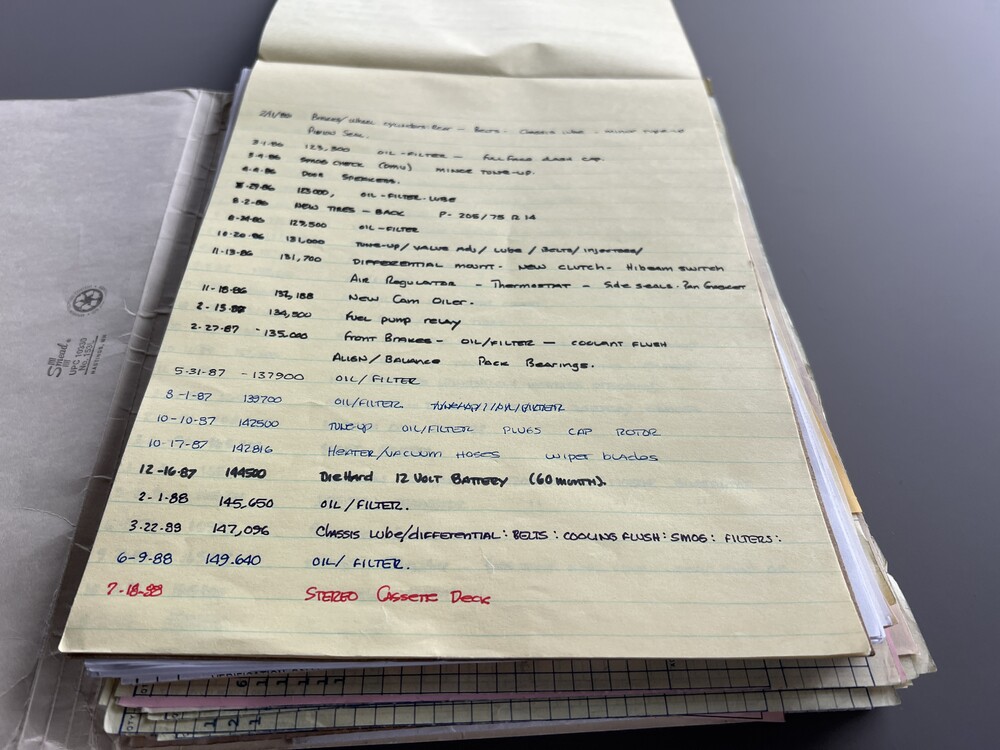 Brakes/wheel cylinders: Rear — Belts - Chassis Lube - minor tune-up
Pinion Seal.
3-1-86 123,500 OIL-FILTER — Full Flare CAP.
3-4-86 SMOG CHECK (DMV) MINOR TUNE-UP.
4-4-86 DOOR SPEAKERS.
OIL-FILTER-LUBE
8-2-86 NEW TIRES - BACK P-205/75 R 14
129,500 OIL-FILTER
10-20-86 131,000 TUNE-UP/ VALVE ADJ/ LUBE /BELTS/ INJECTORS/
11-13-86 131,700 DIFFERENTIAL MOUNT- NEW CLUTCH- HIBEAM SWITCH
AIR REGULATOR - THERMOSTAT - SIDE SEALS- PAN GASKET
11-18-86 132,188 NEW CAM OILER.
2-15-87 134,500 FUEL PUMP RELAY
2-27-87 -135,000 FRONT BRAKES- OIL/FILTER — COOLANT FLUSH
ALIGN/BALANCE PACK BEARINGS.
5-31-87 -137900 OIL/FILTER
8-1-87 139700 OIL/FILTER
10-10-87 142500 TUNEUP OIL/FILTER PLUGS CAP ROTOR
10-17-87 142816 HEATER/VACUUM HOSES WIPER BLADES
12-16-87 144500 DIEHARD 12 VOLT BATTERY (60 MONTH).
2-1-88 145,650 OIL/FILTER.
3-22-89 147,096 CHASSIS LUBE/DIFFERENTIAL: BELTS: COOLING FLUSH: SMOG: FILTERS:
6-9-88 149.640 OIL/ FILTER.
7-18-88 STEREO CASSETE DECK
Smead
UPC 10330
HASTINGS, MN